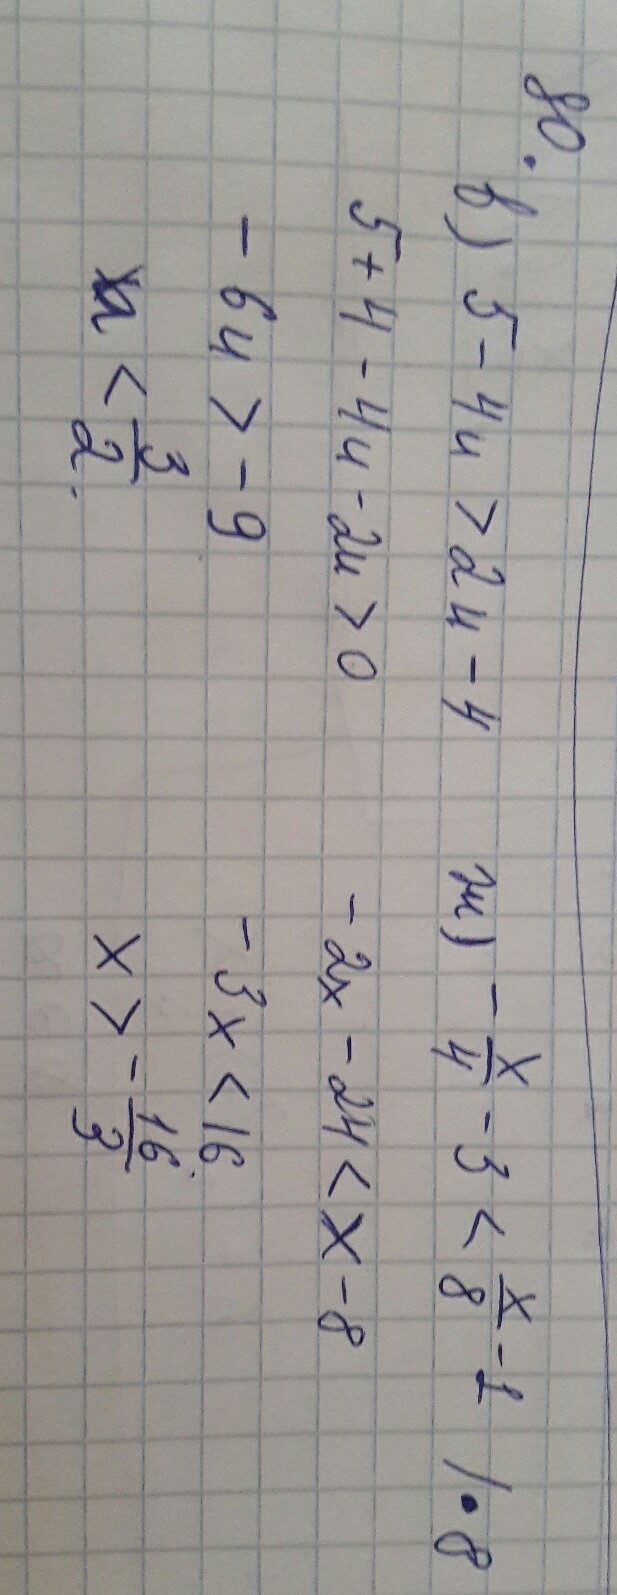 80.
в) 5 - 4u > 2u - 4
5 + 4 - 4u - 2u > 0
- 6u > - 9
u < 3/2.
м) - x/4 - 3 < x/8 - 1 / · 8
- 2x - 24 < x - 8
- 3x < 16
x > - 16/3